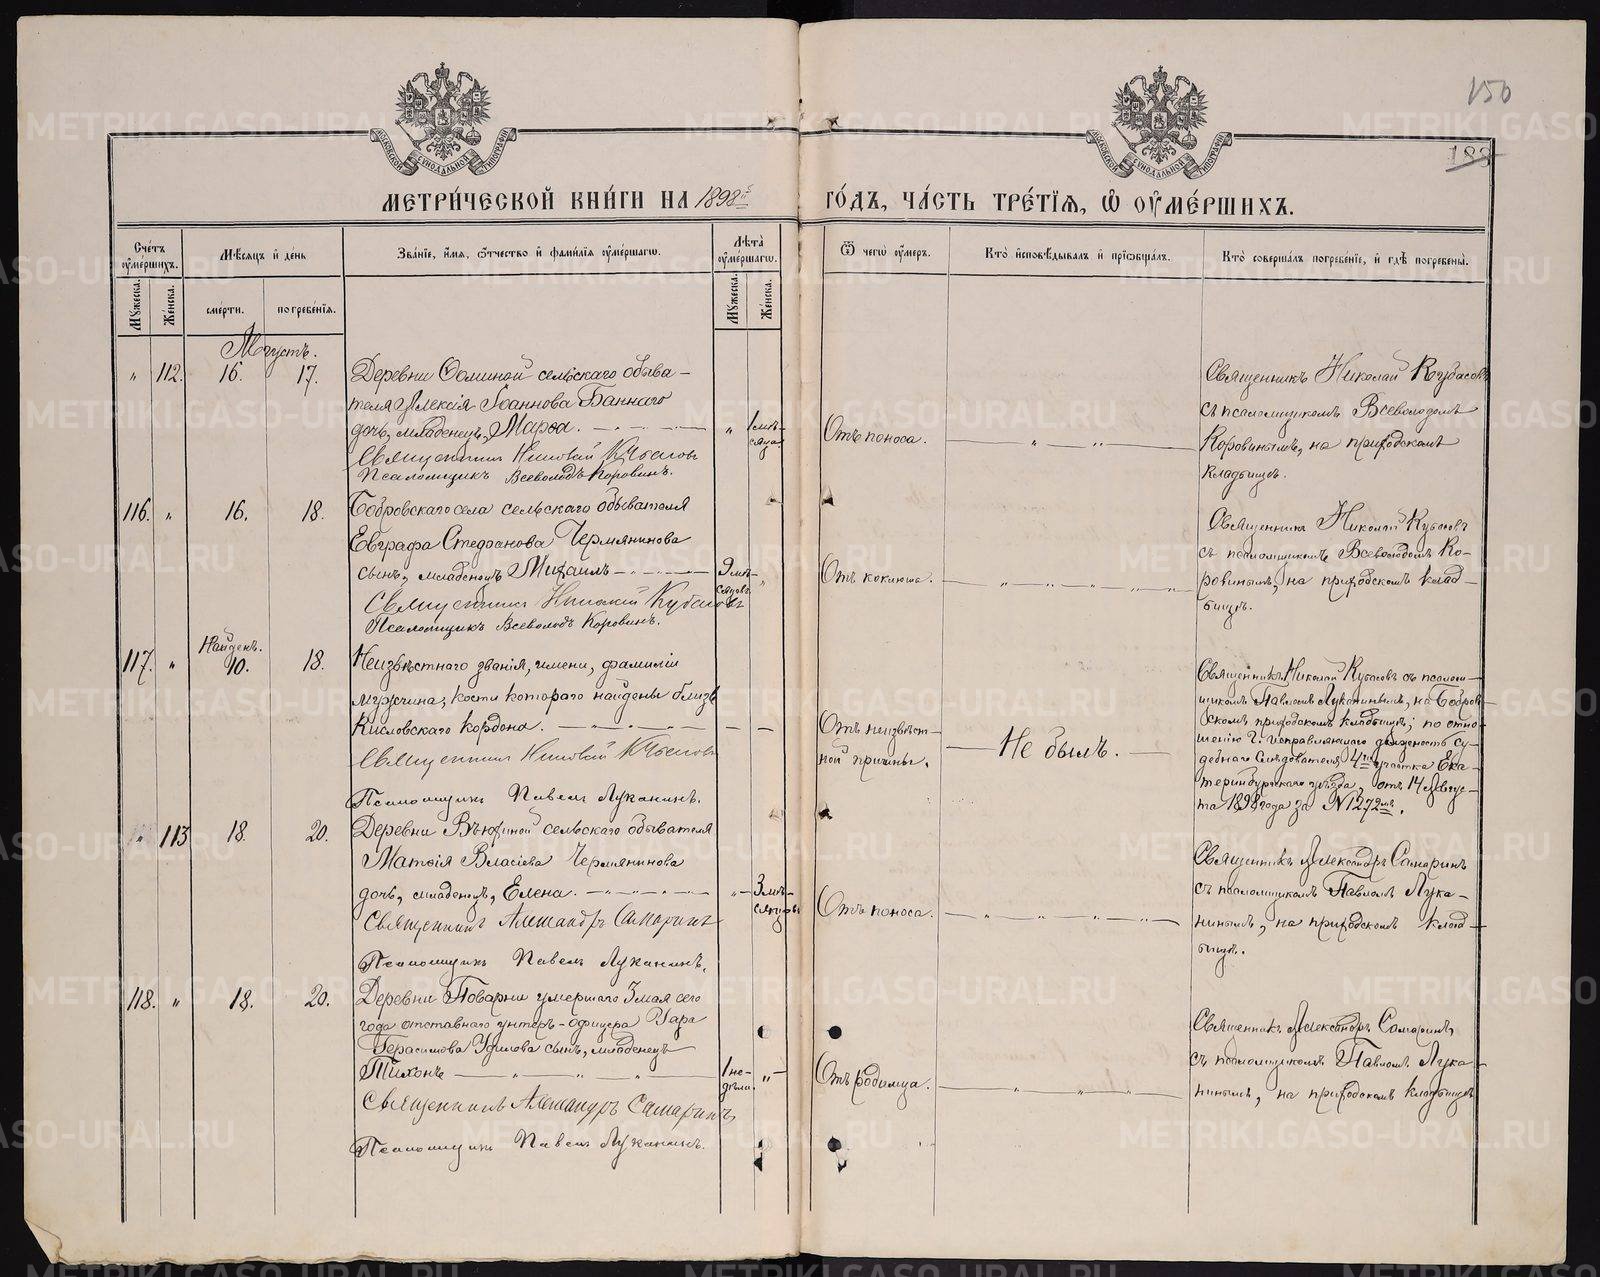 150
188
МОСКОВСКОЙ СѴНОДАЛЬНОЙ ТИПОГРАФІИ
МОСКОВСКОЙ СѴНОДАЛЬНОЙ ТИПОГРАФІИ
МЕТРИ́ЧЕСКОЙ КНИ́ГИ НА 1898й
ГО́ДЪ, ЧА́СТЬ ТРЕ́ТІѦ, Ѡ ОУМЕ́РШИХЪ.
Сче́тъ оуме́ршихъ.
Мѣ́сяцъ и де́нь
Зва́нїе, и́мѧ, ѻ́тчество и фамилїѧ оуме́ршагѡ.
Лѣта̀ оуме́ршагѡ.
Ѿ чегѡ̀ оу́меръ.
Кто̀ и҆сповѣ́дывалъ и҆ прїѡбща́лъ.
Кто̀ соверша́лъ погребе́нїе, и҆ гдѣ̀ погребены̀.
Му́жеска.
Же́нска.
сме́рти.
погребе́нїѧ.
Му́жеска.
Же́нска.
Августъ.
" 112. 16. 17.
Деревни Ѳоминой сельскаго обыва-
теля Алексія Іоаннова Баннаго
дочь, младенецъ, Марѳа.
Священникъ Николай Кубасовъ
Псаломщикъ Всеволодъ Коровинъ.
" 1 мѣ-
сяца
Отъ поноса.
Священникъ Николай Кубасовъ
съ псаломщикомъ Всеволодомъ
Коровинымъ, на приходскомъ
кладбищѣ.
116. " 16. 18.
Бобровскаго села сельскаго обывателя
Евграфа Стефанова Чермянинова
сынъ, младенецъ Михаилъ
Священникъ Николай Кубасовъ
Псаломщикъ Всеволодъ Коровинъ.
9 мѣ-
сяцовъ "
Отъ коклюша.
Священникъ Николай Кубасовъ
съ псаломщикомъ Всеволодомъ Ко-
ровинымъ, на приходскомъ клад-
бищѣ.
Найденъ.
117. " 10. 18.
Неизвѣстнаго званія, имени, фамиліи
мужчина, кости котораго найдены близъ
Кисловскаго кордона.
Священникъ Николай Кубасовъ
Псаломщикъ Павелъ Луканинъ.
Отъ неизвѣст-
ной причины.
Не былъ.
Священникъ Николай Кубасовъ съ псалом-
щикомъ Павломъ Луканинымъ, на Бобров-
скомъ приходскомъ кладбищѣ; по отно-
шенію Г. исправляющаго должность Су-
дебнаго Слѣдователя 4го участка Ека-
теринбургскаго уѣзда, отъ 14 Авгус-
та 1898 года за № 1272мъ.
" 113 18. 20.
Деревни Вьюхиной сельскаго обывателя
Матѳія Власіева Чермянинова
дочь, младенецъ, Елена.
Священникъ Александръ Самаринъ
Псаломщикъ Павелъ Луканинъ.
" 3 мѣ-
сяцовъ
Отъ поноса.
Священникъ Александръ Самаринъ
съ псаломщикомъ Павломъ Лука-
нинымъ, на приходскомъ клад-
бищѣ.
118. " 18. 20.
Деревни Поварни умершаго 3 мая сего
года отставнаго унтеръ-офицера
Герасимова сынъ, младенецъ
Тихонъ
Священникъ Александръ Самаринъ
Псаломщикъ Павелъ Луканинъ.
1 не-
дѣли. "
Отъ родимца.
Священникъ Александръ Самаринъ,
съ псаломщикомъ Павломъ Лука-
нинымъ, на приходскомъ кладбищѣ
METRIKI.GASO-URAL.RU